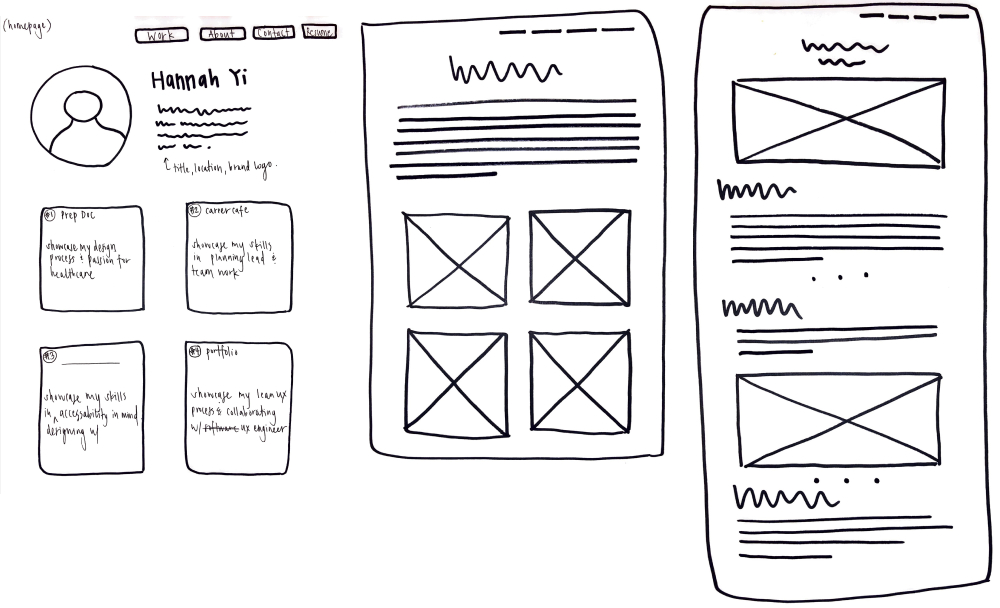 (homepage)
Work About Contact Resume
Hannah Yi
title, location, brand logo.
#1 Prep Doc
showcase my design
process & passion for
healthcare
#2 career cafe
showcase my skills
in planning lead &
team work
#3
showcase my skills
in accessability in mind
designing w/
#4 portfolio
showcase my lean UX
process & collaborating
w/ software ux engineer